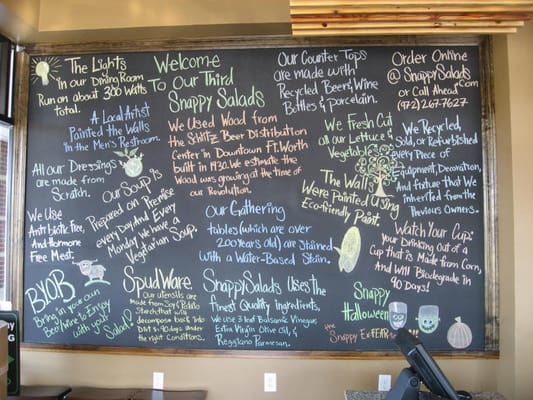 The Lights
In our Dining Room
Run on about 300 Watts
total.
Welcome
To Our Third
Snappy Salads
Our Counter Tops
are made with
Recycled Beer, Wine
Bottles & Porcelain.
Order Online
@ SnappySalads
.Com
or Call Ahead
(972)267-7627
A Local Artist
Painted the Walls
In the Men's Restroom
We Used Wood from
the Schlitz Beer Distribution
Center in Downtown Ft. Worth
built in 1430. We estimate the
Wood was growing at the time of
our Revolution.
We Fresh Cut
all our Lettuce &
Vegetables
We Recycled,
Sold, or Refurbished
every Piece of
Equipment, Decoration,
and fixture that We
Inherited from the
Previous Owners.
All our Dressings
are made from
Scratch.
Our Soup is
Prepared on Premise
every Day. And Every
Monday We have a
Vegetarian Soup.
The Walls
Were Painted Using
Eco-friendly Paint.
We Use
Antibiotic free,
And Hormone
free Meat.
Our Gathering
tables (which are over
200 years old) are Stained
With a Water-Based Stain.
Watch Your Cup:
your Drinking Out of a
Cup that is Made from Corn,
And Will Biodegrade in
90 Days!
BYOB
Bring in your own
Beer/Wine to Enjoy
with your
Salad!
SpudWare
Our utensils are
made from Soy & Potato
Starch that will
decompose back Into
Dirt in 90 days under
the right Conditions.
Snappy Salads Uses the
finest Quality Ingredients,
We use 3 leaf Balsamic Vinegar,
Extra Virgin Olive Oil, &
Reggiano Parmesan.
Snappy
Halloween
the Snappy Ex-FEAR